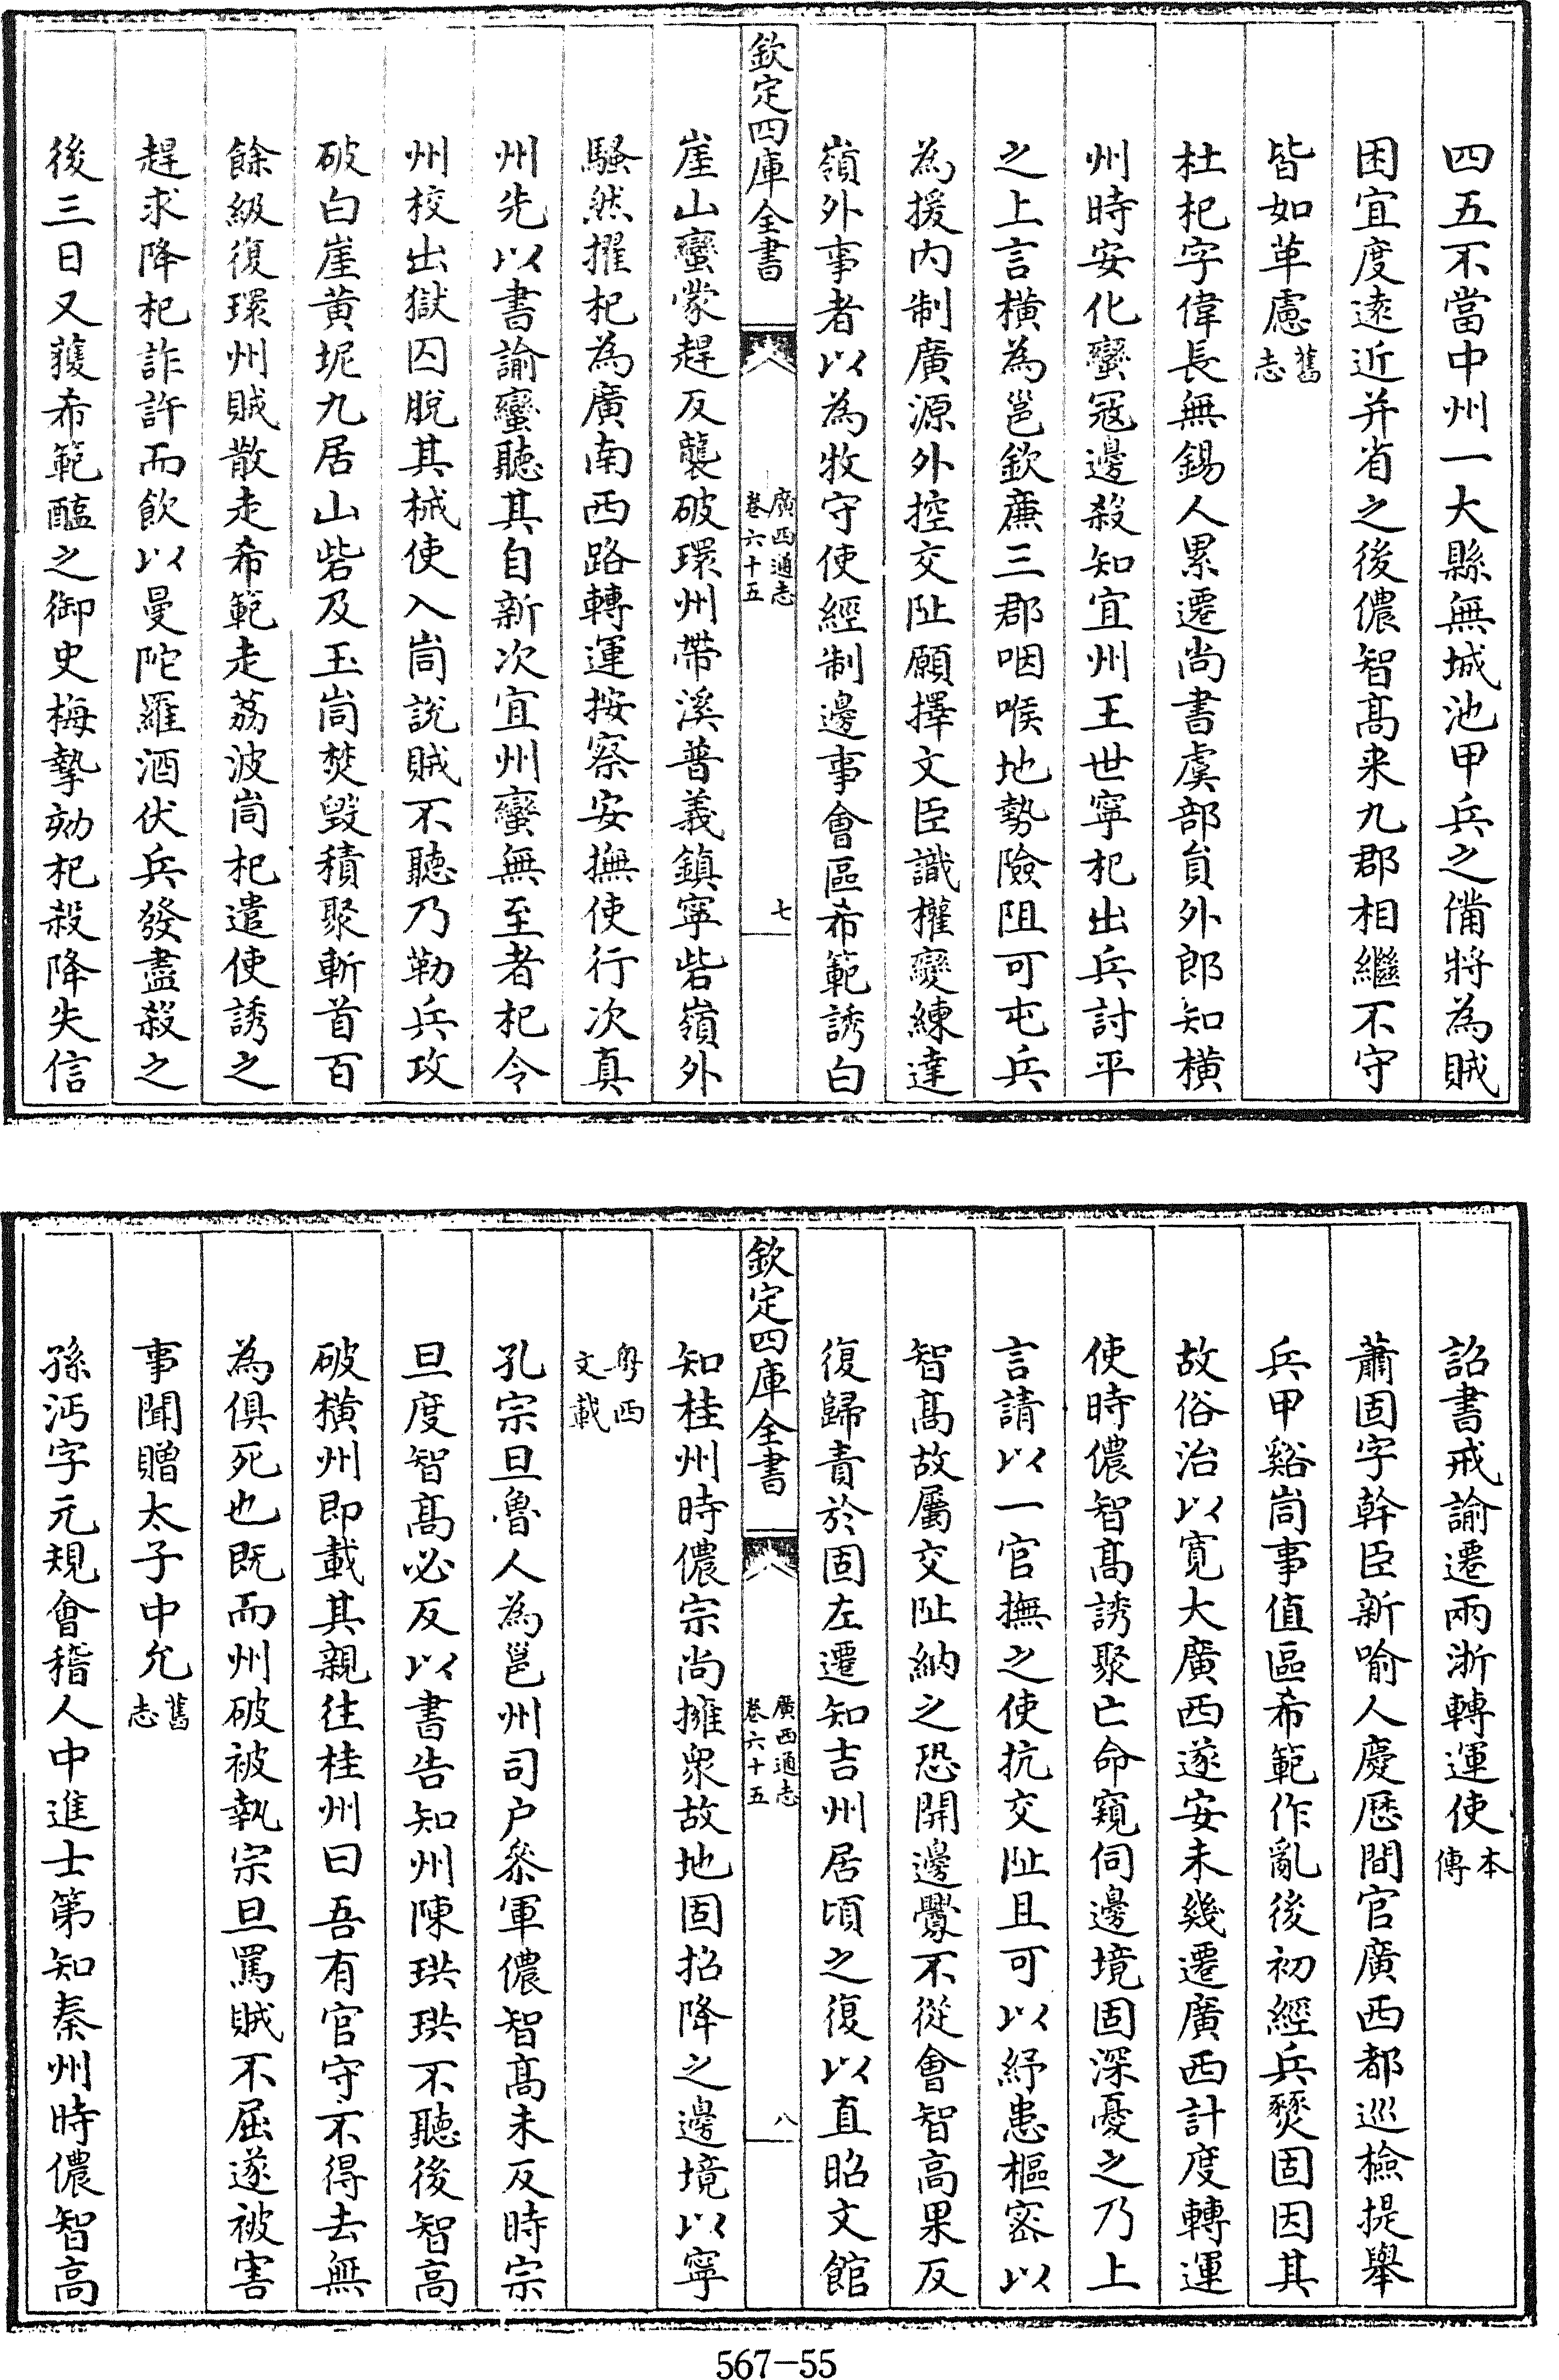 四五不當中州一大縣無城池甲兵之備將為賊
困宜度遠近并省之後儂智髙来九郡相繼不守
皆如革慮舊志
杜杞字偉長無錫人累遷尚書虞部員外郎知横
州時安化蠻冦邊殺知宜州王世寧杞出兵討平
之上言横為邕欽亷三郡咽喉地勢險阻可屯兵
為援内制廣源外控交阯願擇文臣識權變練達
嶺外事者以為牧守使經制邊事會區希範誘白
欽定四庫全書
廣西通志
卷六十五
七
崖山蠻蒙趕反襲破環州帶溪普義鎮寧砦嶺外
騷然擢杞為廣南西路轉運按察安撫使行次真
州先以書諭蠻聽其自新次宜州蠻無至者杞令
州校出獄囚脫其械使入峝説賊不聽乃勒兵攻
破白崖黄坭九居山砦及玉峝焚毁積聚斬首百
餘級復環州賊散走希範走荔波峝杞遣使誘之
趕求降杞詐許而飲以曼陀羅酒伏兵發盡殺之
後三日又獲希範醢之御史梅摯劾杞殺降失信
詔書戒諭遷兩浙轉運使本傳
蕭固字幹臣新喻人慶厯間官廣西都巡檢提舉
兵甲谿峝事值區希範作亂後初經兵燹固因其
故俗治以寛大廣西遂安未幾遷廣西計度轉運
使時儂智髙誘聚亡命窺伺邊境固深憂之乃上
言請以一官撫之使抗交阯且可以紓患樞宻以
智髙故屬交阯納之恐開邊釁不從會智高果反
復歸責於固左遷知吉州居頃之復以直昭文館
欽定四庫全書
廣西通志
卷六十五
八
知桂州時儂宗尚擁衆故地固招降之邊境以寧
粤西文載
孔宗旦魯人為邕州司户叅軍儂智髙未反時宗
旦度智髙必反以書告知州陳珙珙不聽後智高
破横州即載其親往桂州曰吾有官守不得去無
為俱死也既而州破被執宗旦罵賊不屈遂被害
事聞贈太子中允舊志
孫沔字元規會稽人中進士第知秦州時儂智高
567-55